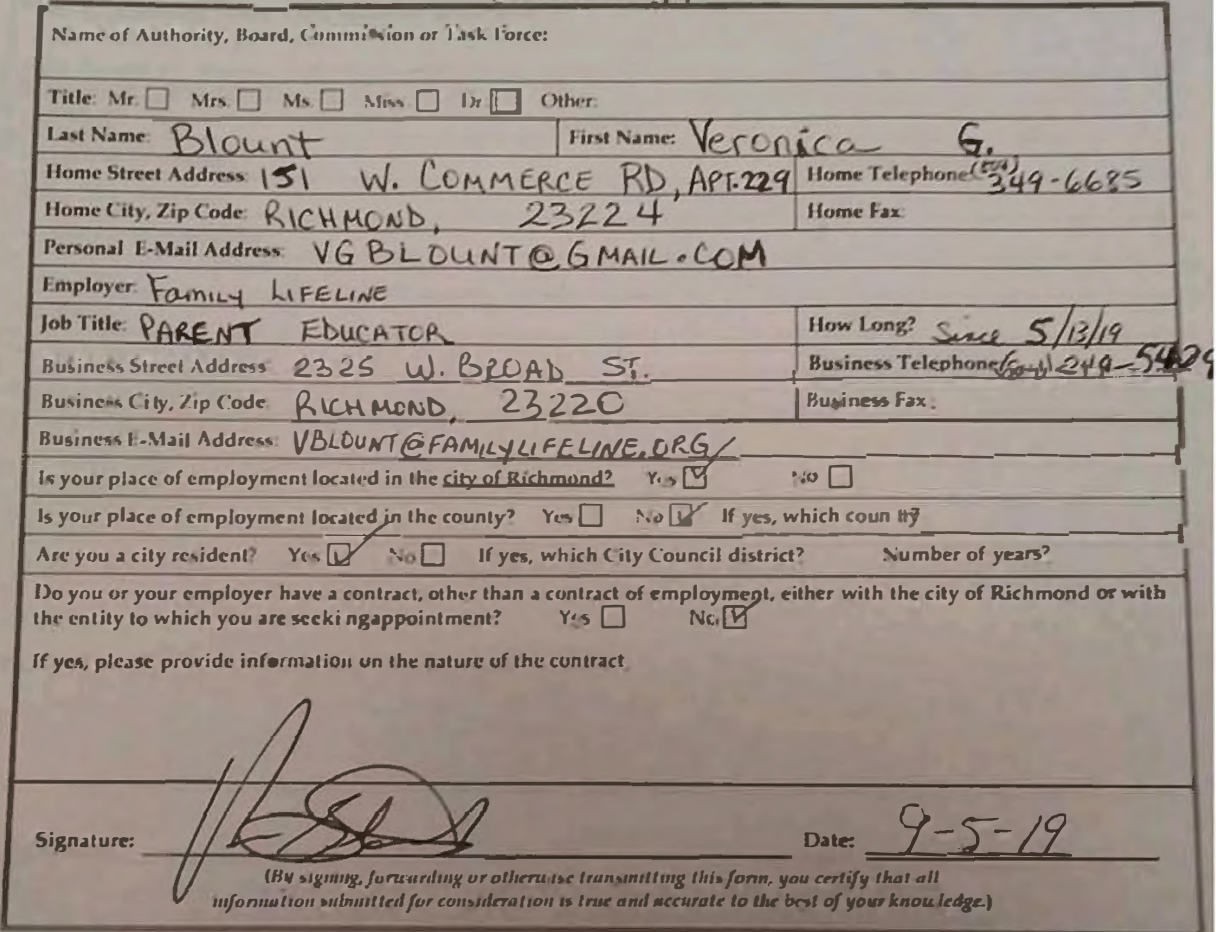 Name of Authority, Board, Commission or Task Force:
Title: Mr. Mrs. Ms. Miss Dr. Other:
Last Name: Blount First Name: Veronica G.
Home Street Address: 151 W. COMMERCE RD, APT. 229 Home Telephone: 349-6685
Home City, Zip Code: RICHMOND, 23224 Home Fax:
Personal E-Mail Address: VGBLOUNT@GMAIL.COM
Employer: Family LIFELINE
Job Title: PARENT EDUCATOR How Long? Since 5/13/19
Business Street Address: 2325 W. BROAD ST. Business Telephone
Business City, Zip Code: RICHMOND, 23220 Business Fax:
Business E-Mail Address: VBLOUNT@FAMILYLIFELINE.ORG
Is your place of employment located in the city of Richmond? Yes No
Is your place of employment located in the county? Yes No If yes, which
Are you a city resident? Yes No If yes, which City Council district? Number of years?
Do you or your employer have a contract, other than a contract of employment, either with the city of Richmond or with
the entity to which you are seeki ngappointment? Yes No
If yes, please provide information on the nature of the contract
Signature: Date: 9-5-19
(By signing, forwarding or otherwise transmitting this form, you certify that all
information submitted for consideration is true and accurate to the best of your knowledge.)